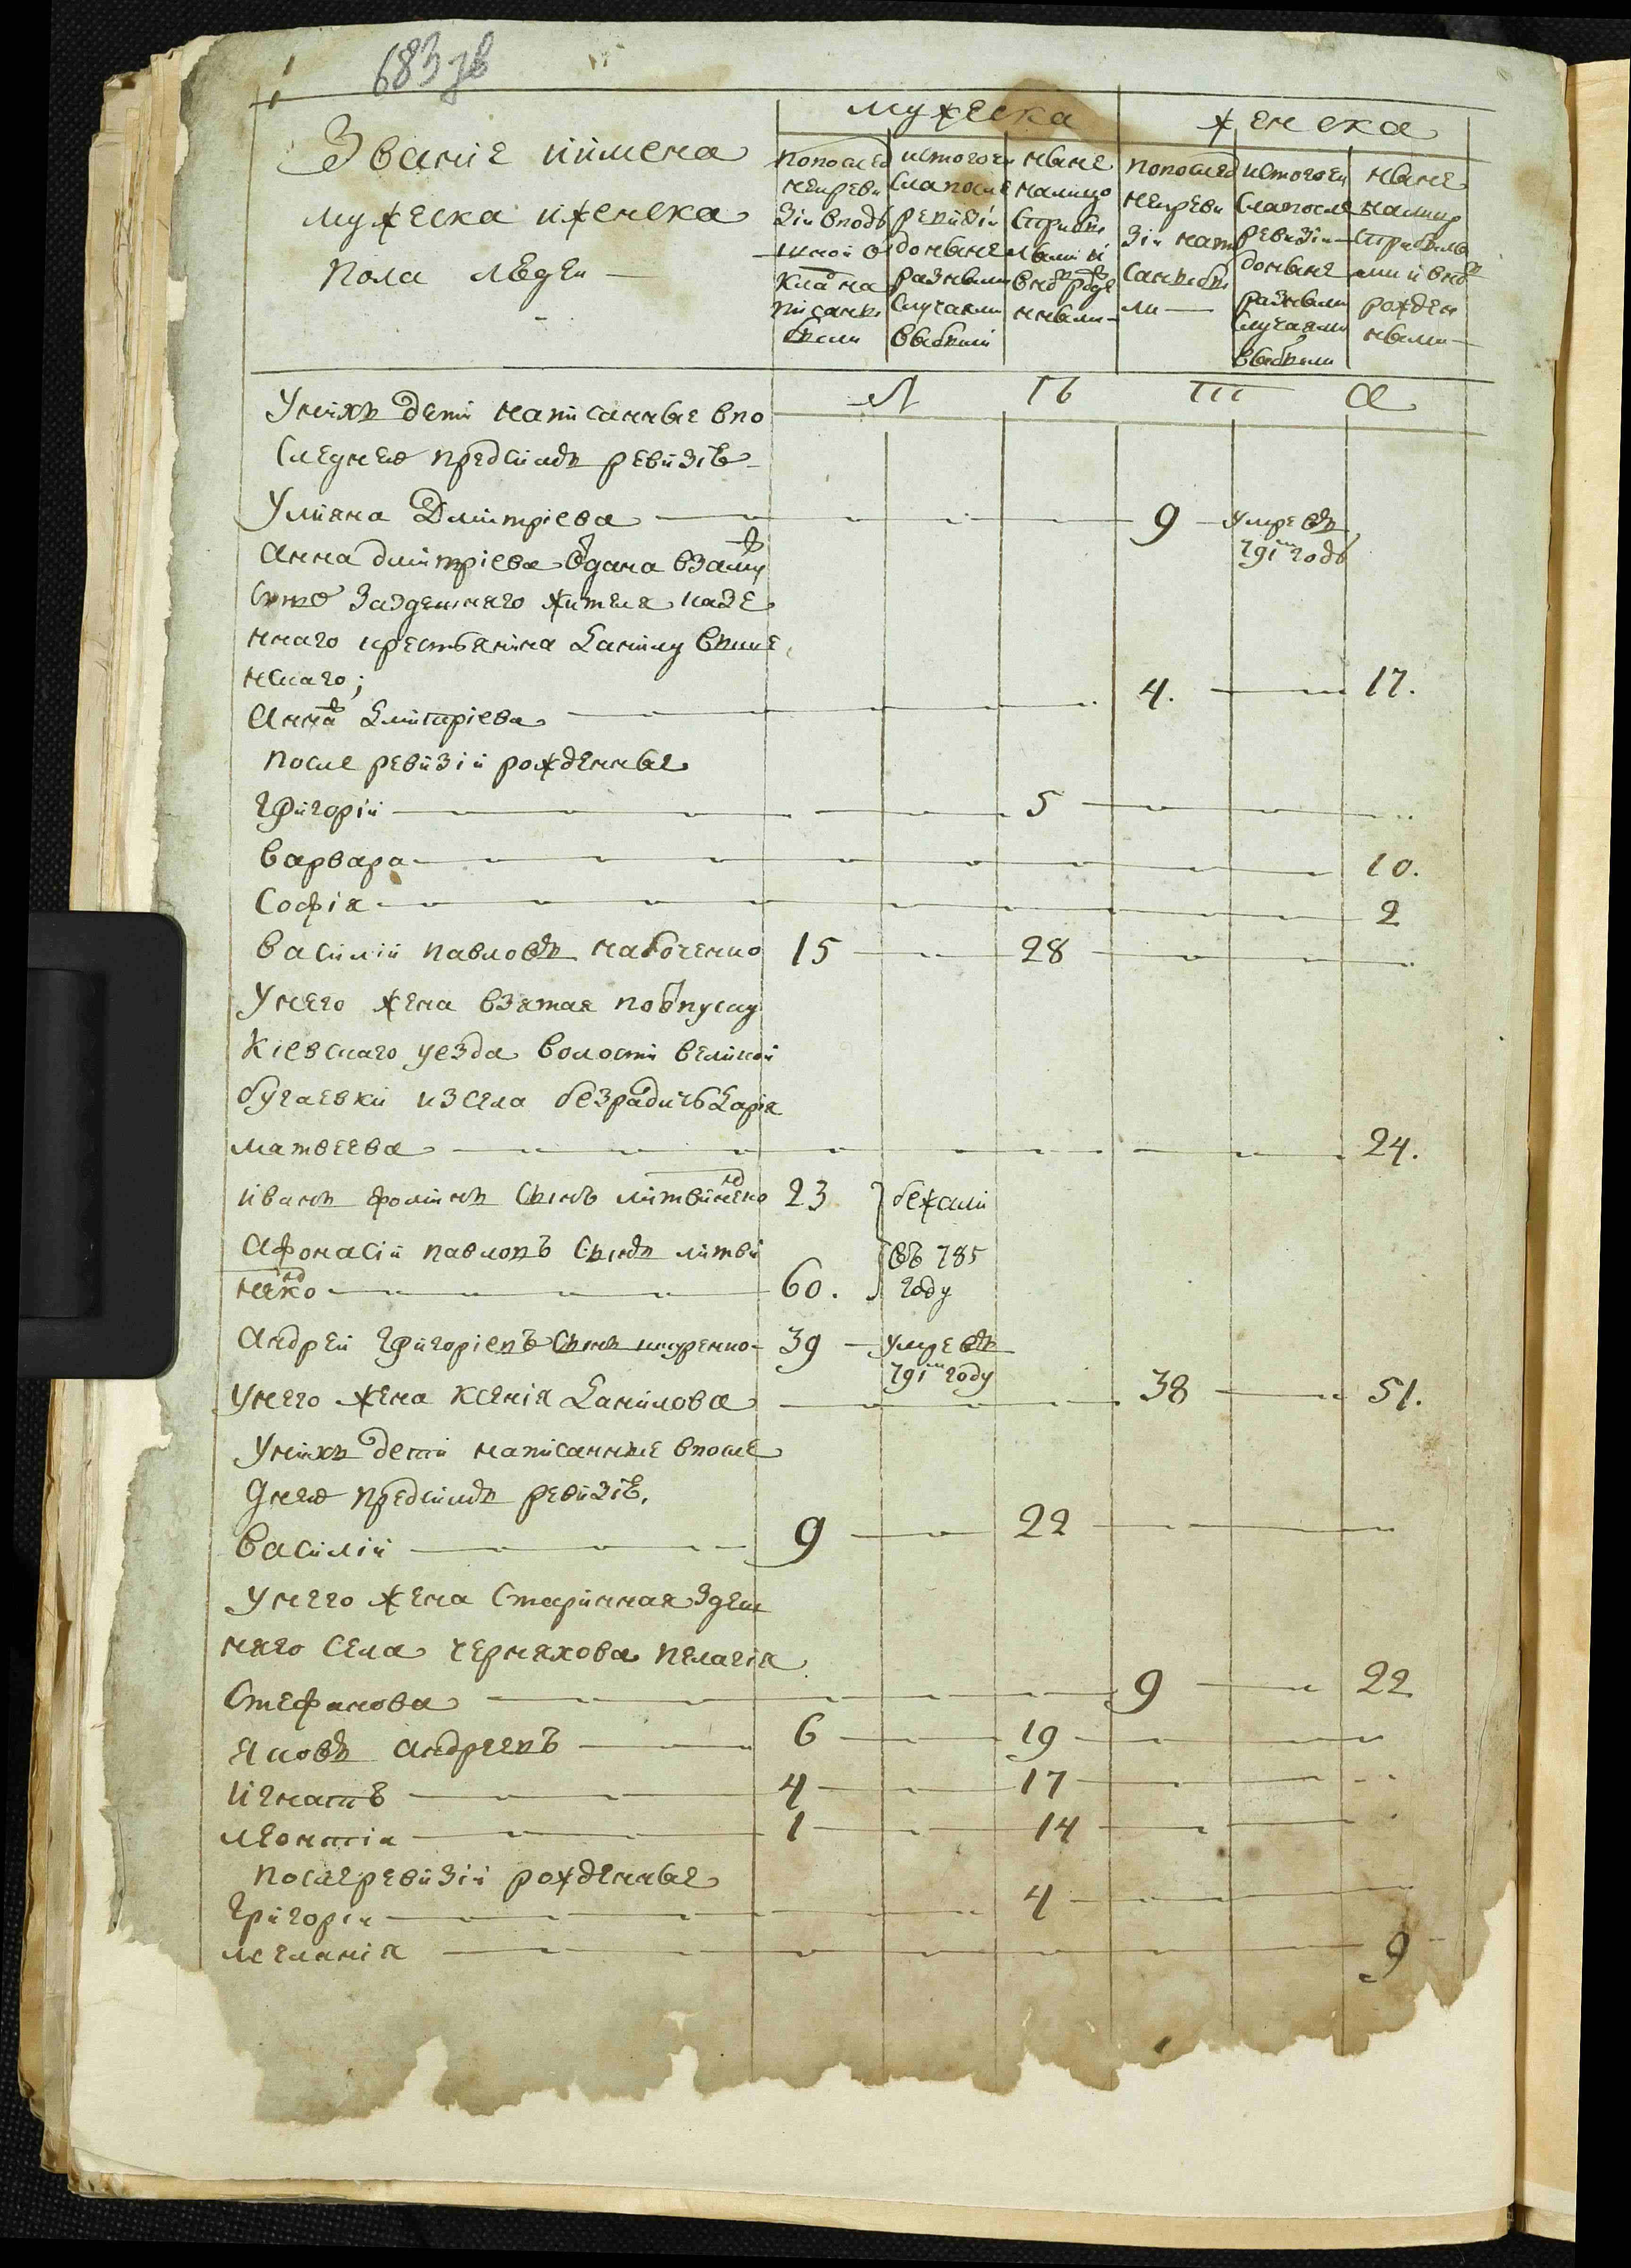 683 зв
мужеска
женска
Званіе иимена
мужеска иженска
пола людеи
попослед
неиреви
зіи вподу
шной о
кладъ на
писаны
были
истогочи
сла после
ревизіи
донынѣ
разными
случаями
выбыли
ныне
налицо
сприбы
лыми и
вновь рожде
нными
попослед
неиреви
зіи напи
саны бы
ли
истогочи
сла после
ревизіи
доныне
разными
случаями
выбыли
ныне
налицо
сприбылы
ми и вновь
рожден
ными
Л Тъ Ш а
Унихъ дети написанные впо
следнею предсимъ ревизію
Улияна Дмитріева 9 умре въ
791м годъ
анна дмитріева отдана взаму
ство заздешняго жителя казе
ннаго крестьянина Данилу
нскаго;
Анна Дмитріева 4. 17.
после ревизіи рожденные
Григорій 5
Варвара 10.
Софія 2
Василій павловъ набоченко 15 28
Унего жена взятая поотпуску
Кіевскаго уезда волости великой
бугаевки изсела безрадичъ Дарія
матвеева 24.
Иванъ фоминъ сынъ литвиненко 23 бежали
Афонасій павловъ сынъ литви
ненко 60. въ 785
году
Андрей Григоріевъ сынъ шкуренко 39 умре въ
791м году
Унего жена Ксенія Данилова 38 51.
Унихъ дети написанные впосле
днею предсимъ ревизію.
Василій 9 22
унего жена старинная здеш
няго села черняхова пелагія
Стефанова 9 22
Яковъ андреевъ 6 19
Игнатъ 4 17
леонтіи 1 14
послеревизіи рожденные
Григоріи 4
меланія 9